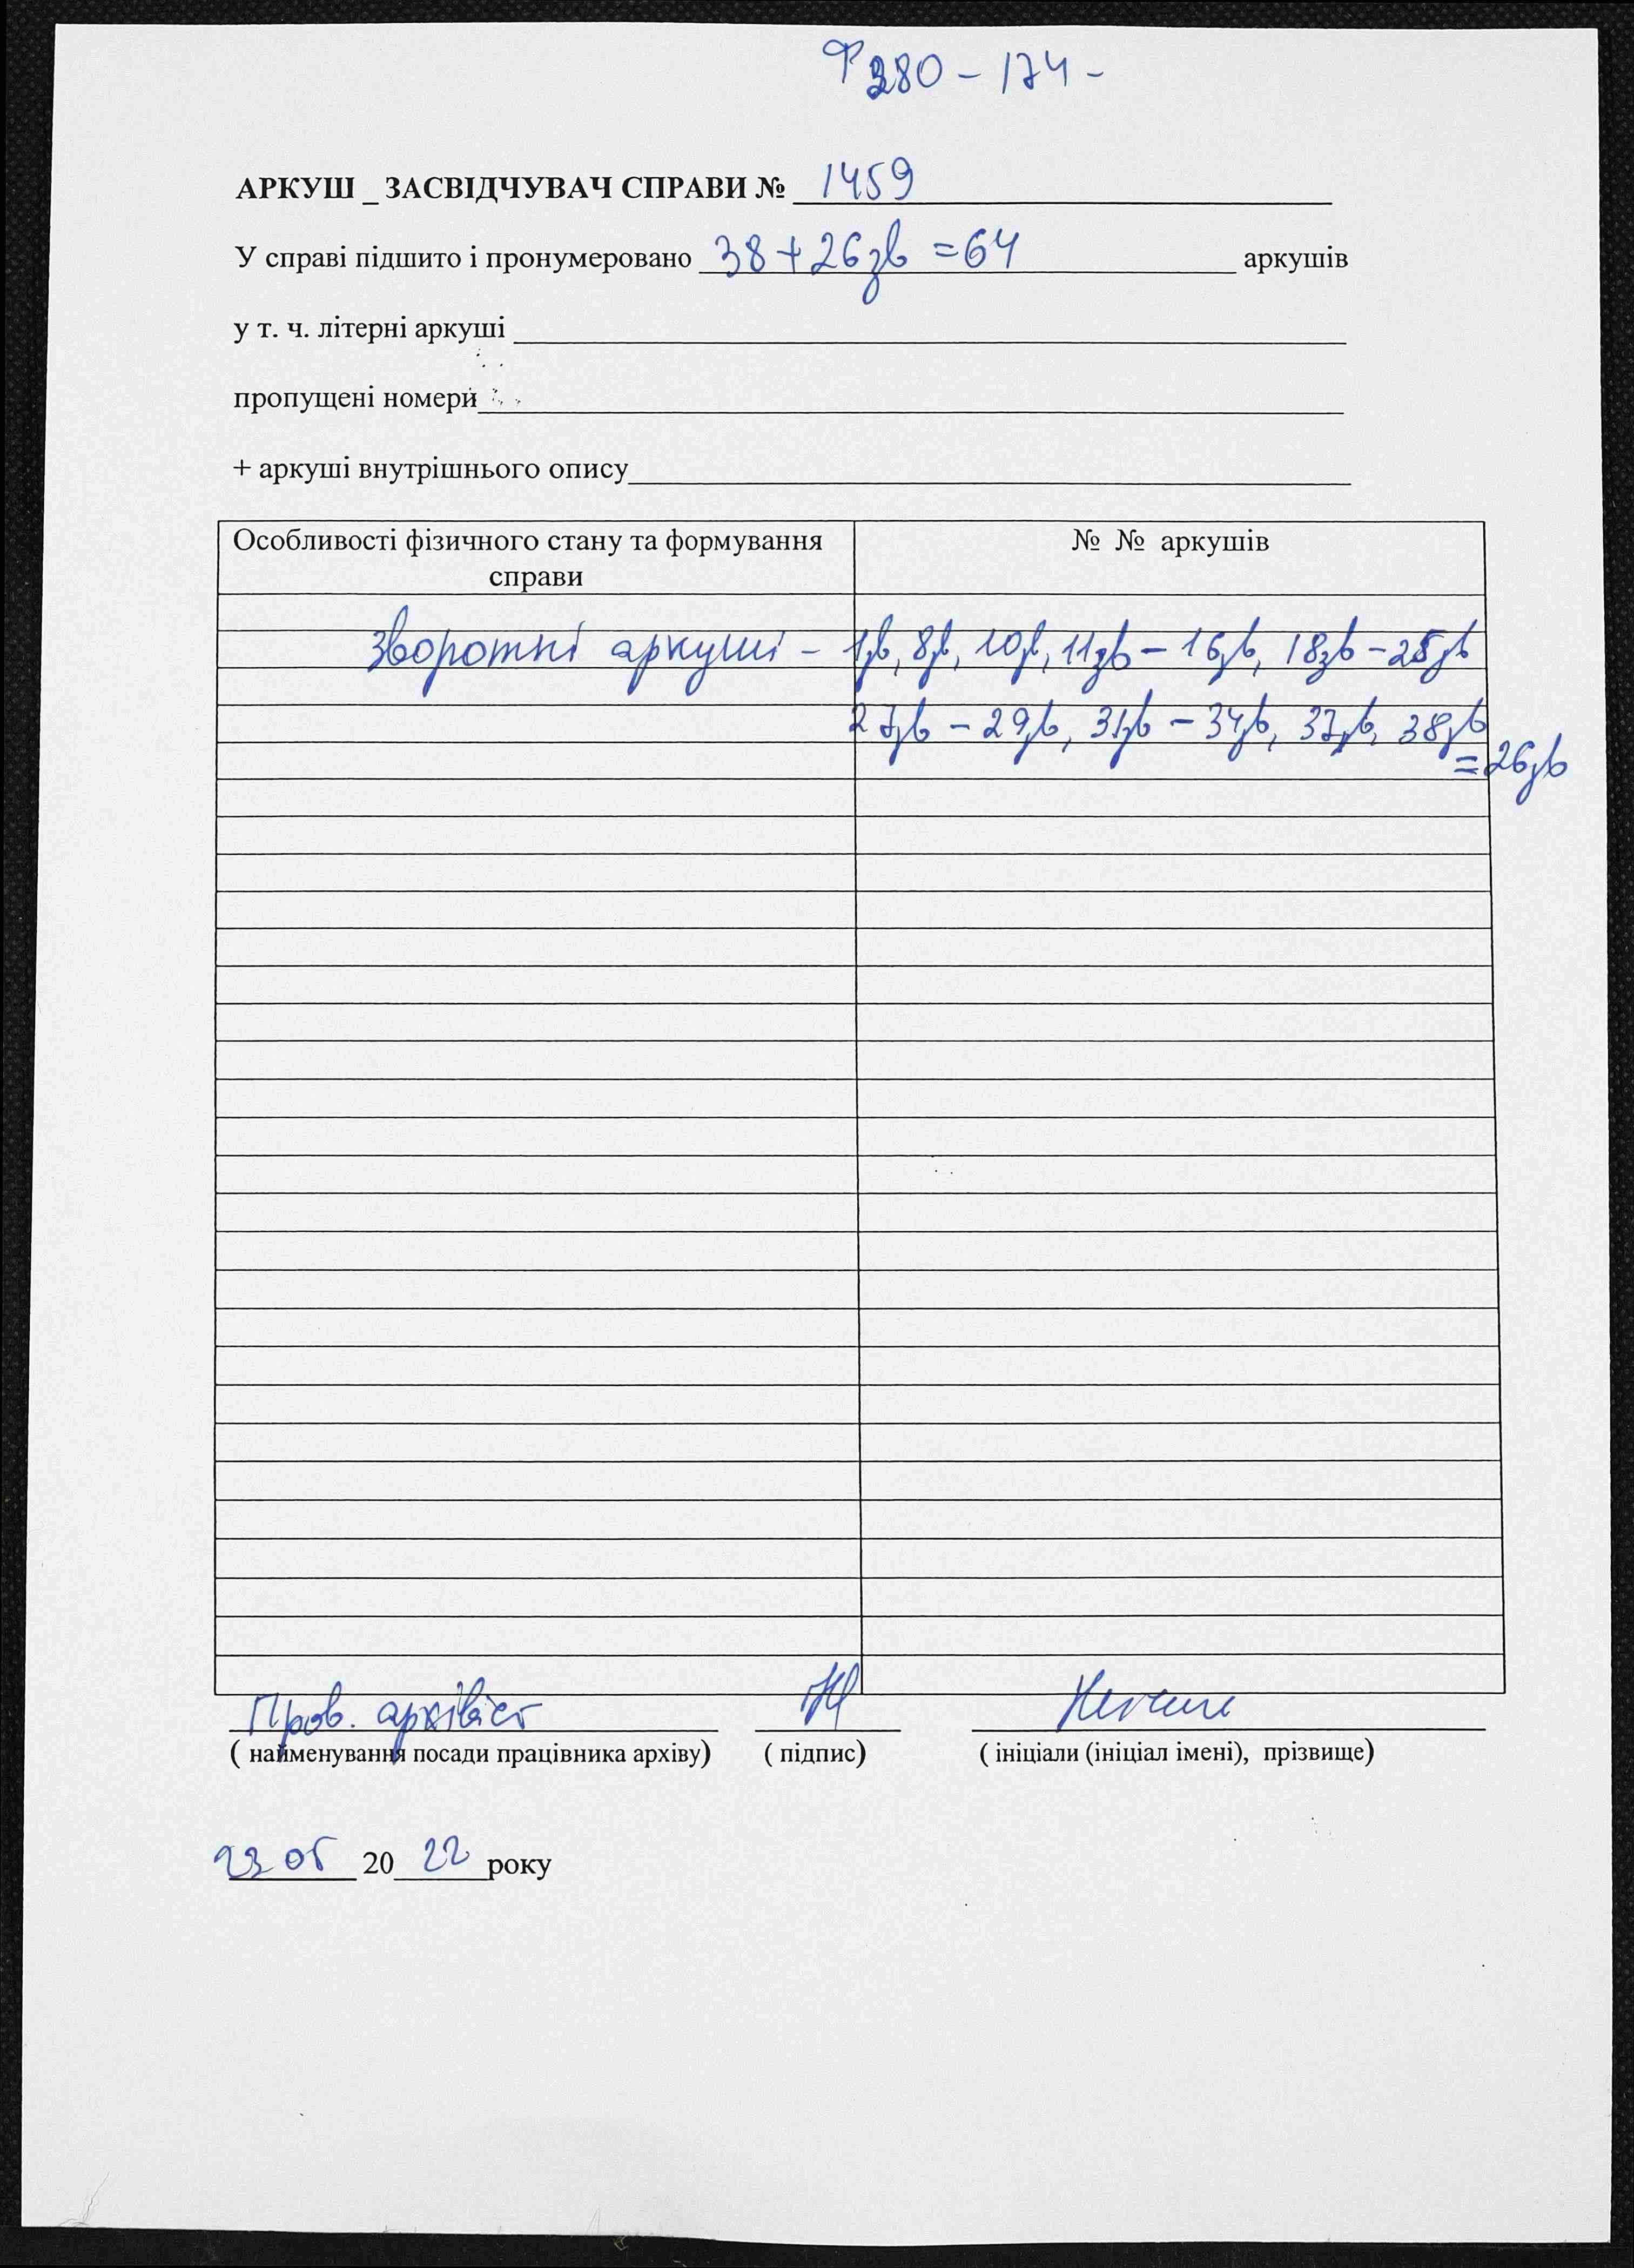 Р380 - 174 -
АРКУШ _ ЗАСВІДЧУВАЧ СПРАВИ № 1459
У справі підшито і пронумеровано 38 + 26зв = 64 аркушів
у т. ч. літерні аркуші
пропущені номери
+ аркуші внутрішнього опису
Особливості фізичного стану та формування справи № № аркушів
зворотні аркуші – 1зв, 8зв, 10зв, 11зв – 16зв, 18зв – 25зв
27зв – 29зв, 31зв – 34зв, 37зв, 38зв
= 26зв
Пров. архівіст
( найменування посади працівника архіву) ( підпис) ( ініціали (ініціал імені), прізвище)
23 05 20 22 року